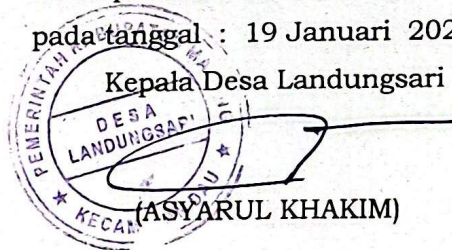 pada tanggal : 19 Januari 202
Kepala Desa Landungsari
PEMERINTAH
DESA
LANDUNGSARI
(ASYARUL KHAKIM)